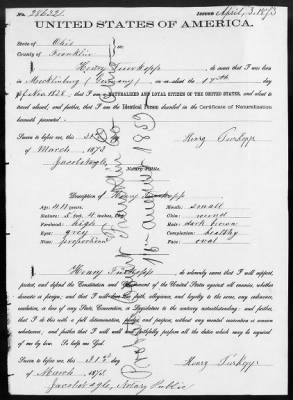 No. 28632. Issued April, 3. 1873
UNITED STATES OF AMERICA.
State of Ohio
County of Franklin
I, Henry, do swear that I was born
in Mecklenburg (Germany) on or about the 17th day
of Nov 1828, that I am a NATURALIZED AND LOYAL CITIZEN OF THE UNITED STATES, and about to
travel abroad, and further, that I am the Identical Person described in the Certificate of Naturalization
herewith presented.
Sworn to before me, this 31st day
of March, 1873
Henry
Notary Public.
Description of Henry
Age: 44 years
Stature: 5 feet 4 inches, Eng.
Forehead: high
Eyes: grey
Nose: proportioned
Mouth: small
Chin: round
Hair: dark brown
Complexion: healthy
Face: oval
I, Henry, do solemnly swear that I will support,
protect, and defend the Constitution and Government of the United States against all enemies, whether
domestic or foreign; and that I will bear true faith, allegiance, and loyalty to the same, any ordinance,
resolution, or law of any State, Convention, or Legislature to the contrary notwithstanding; and further,
that I do this with a full determination, pledge, and purpose, without any mental reservation or evasion
whatsoever; and further, that I will well and faithfully perform all the duties which may be required
of me by law. So help me God.
Sworn to before me, this 31st day
of March 1873
Henry
Notary Public
Franklin Co